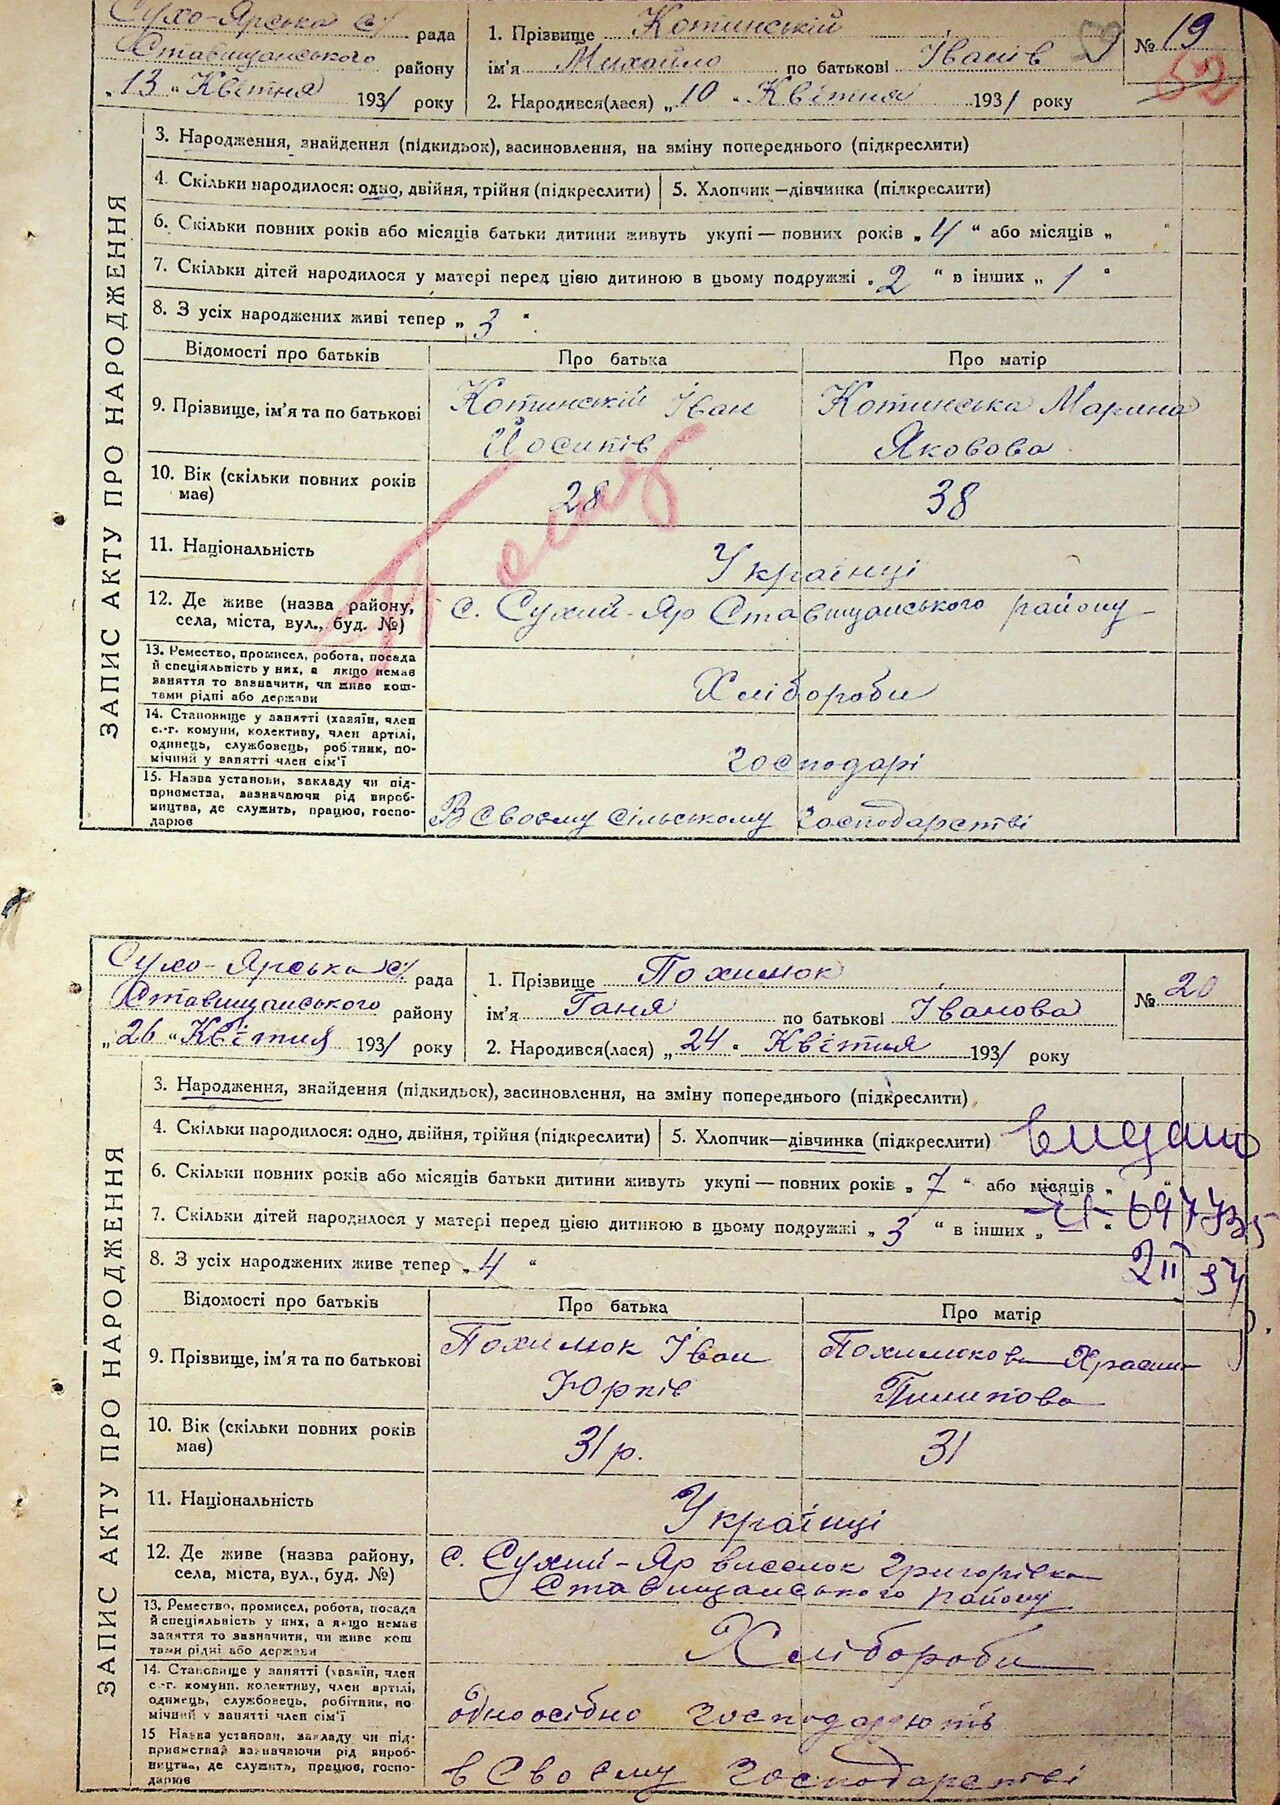 Сухо-Ярська с/ рада
Ставищанського району
„13" Квітня 1931 року
1. Прізвище Котинській
ім'я Михайло по батькові Іванів
2. Народився(лася) „10" Квітня 1931 року
59
№ 19
52
ЗАПИС АКТУ ПРО НАРОДЖЕННЯ
3. Народження, знайдення (підкидьок), засиновлення, на зміну попереднього (підкреслити)
4. Скільки народилося: одно, двійня, трійня (підкреслити) 5. Хлопчик—дівчинка (підкреслити)
6. Скільки повних років або місяців батьки дитини живуть укупі — повних років „4" або місяців „ "
7. Скільки дітей народилося у матері перед цією дитиною в цьому подружжі „2" в інших „1"
8. З усіх народжених живі тепер „3"
Відомості про батьків Про батька Про матір
9. Прізвище, ім'я та по батькові Котинській Іван Йосипів Котинська Марина Яковова
10. Вік (скільки повних років має) 28 38
11. Національність Українці
12. Де живе (назва району, села, міста, вул., буд. №) с. Сухий-Яр Ставищанського району
13. Ремество, промисел, робота, посада й спеціяльність у них, а якщо немає заняття то вазначити, чи живе коштами рідні або держави Хлібороби
14. Становище у занятті (хазяїн, член с.-г. комуни, колективу, член артілі, одинець, службовець, робітник, помічний у занятті член сім'ї господарі
15. Назва установи, закладу чи підприємства, вазначаючи рід виробництва, де служить, працює, господарює В своєму сільському господарстві
Сухо-Ярська с/ рада
Ставищанського району
„26" Квітня 1931 року
1. Прізвище Похилюк
ім'я Ганя по батькові Іванова
2. Народився(лася) „24" Квітня 1931 року
№ 20
ЗАПИС АКТУ ПРО НАРОДЖЕННЯ
3. Народження, знайдення (підкидьок), засиновлення, на зміну попереднього (підкреслити)
4. Скільки народилося: одно, двійня, трійня (підкреслити) 5. Хлопчик—дівчинка (підкреслити)
видано
6. Скільки повних років або місяців батьки дитини живуть укупі — повних років „7" або місяців „ "
7. Скільки дітей народилося у матері перед цією дитиною в цьому подружжі „3" в інших „
8. З усіх народжених живе тепер „4"
Відомості про батьків Про батька Про матір
9. Прізвище, ім'я та по батькові Похилюк Іван Юрків Похилюкова Пилипова
10. Вік (скільки повних років має) 31 р. 31
11. Національність Українці
12. Де живе (назва району, села, міста, вул., буд. №) с. Сухий-Яр виселок Григорівка Ставищанського району
13. Ремество, промисел, робота, посада й спеціяльність у них, а якщо немає заняття то вазначити, чи живе кош тами рідні або держави Хлібороби
14. Становище у занятті (хазяїн, член с-г. комуни, колективу, член артілі, одинець, службовець, робітник, помічний у занятті член сім'ї одноосібно господарюють
15 Назва установи, закладу чи підприємства вазначаючи рід виробництва, де служить, працює, господарює в своєму господарстві